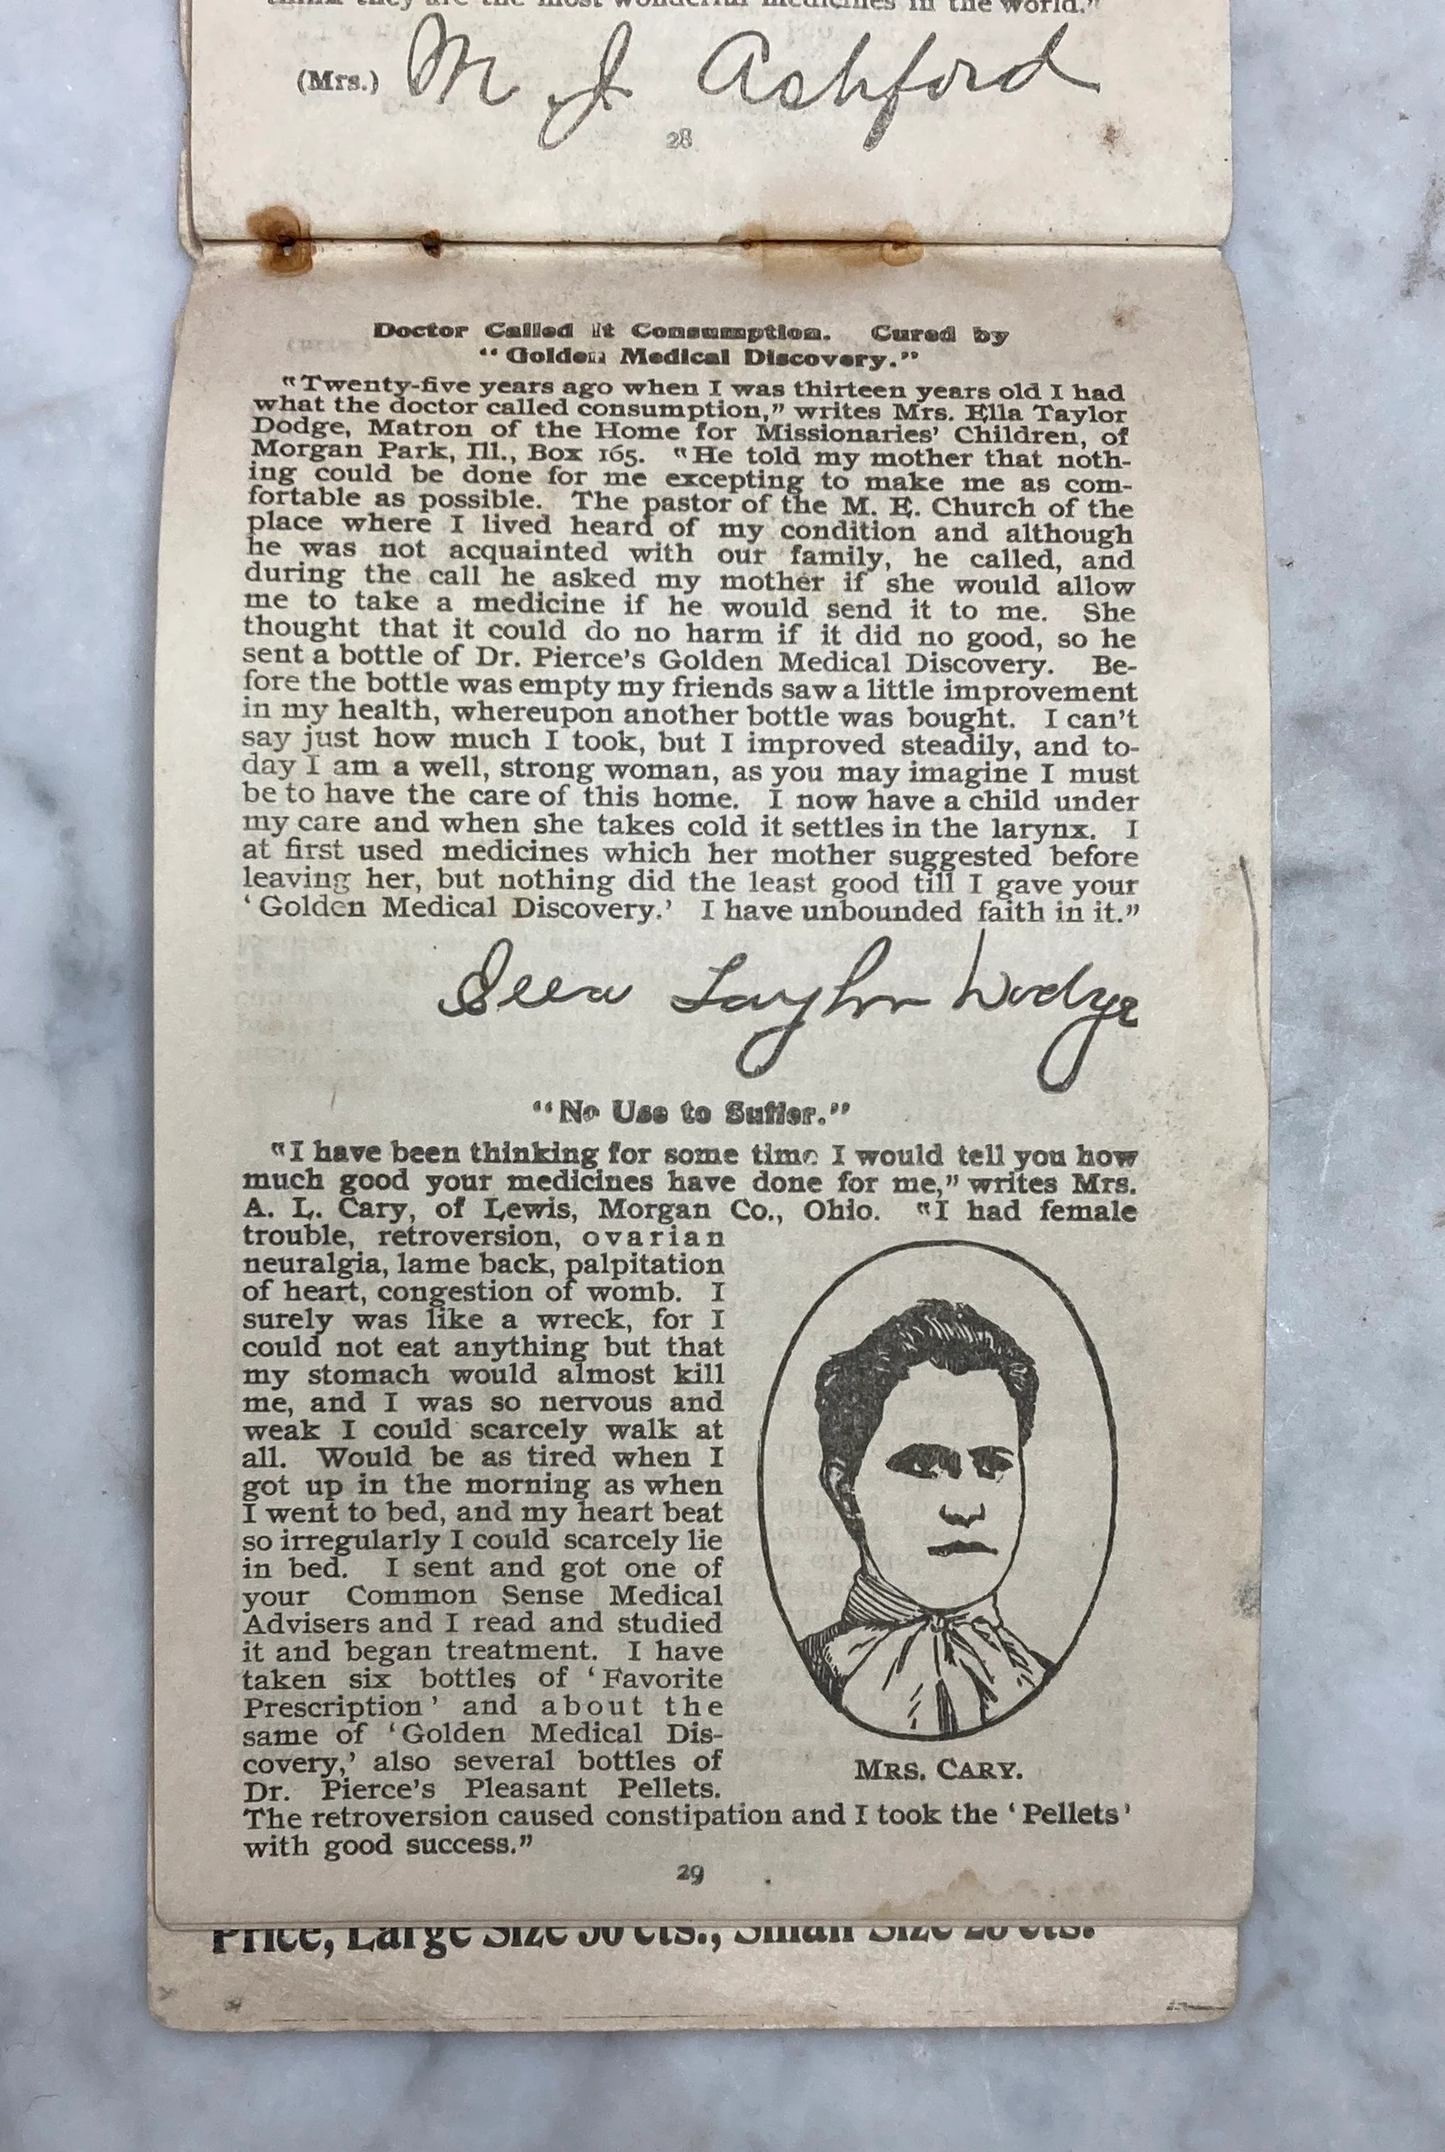 think they are the most wonderful medicines in the world."
(Mrs.) M J Ashford
28
Doctor Called It Consumption. Cured by
"Golden Medical Discovery."
"Twenty-five years ago when I was thirteen years old I had
what the doctor called consumption," writes Mrs. Ella Taylor
Dodge, Matron of the Home for Missionaries' Children, of
Morgan Park, Ill., Box 165. "He told my mother that noth-
ing could be done for me excepting to make me as com-
fortable as possible. The pastor of the M. E. Church of the
place where I lived heard of my condition and although
he was not acquainted with our family, he called, and
during the call he asked my mother if she would allow
me to take a medicine if he would send it to me. She
thought that it could do no harm if it did no good, so he
sent a bottle of Dr. Pierce's Golden Medical Discovery. Be-
fore the bottle was empty my friends saw a little improvement
in my health, whereupon another bottle was bought. I can't
say just how much I took, but I improved steadily, and to-
day I am a well, strong woman, as you may imagine I must
be to have the care of this home. I now have a child under
my care and when she takes cold it settles in the larynx. I
at first used medicines which her mother suggested before
leaving her, but nothing did the least good till I gave your
'Golden Medical Discovery.' I have unbounded faith in it."
Ella Taylor Dodge
"No Use to Suffer."
"I have been thinking for some time I would tell you how
much good your medicines have done for me," writes Mrs.
A. L. Cary, of Lewis, Morgan Co., Ohio. "I had female
trouble, retroversion, ovarian
neuralgia, lame back, palpitation
of heart, congestion of womb. I
surely was like a wreck, for I
could not eat anything but that
my stomach would almost kill
me, and I was so nervous and
weak I could scarcely walk at
all. Would be as tired when I
got up in the morning as when
I went to bed, and my heart beat
so irregularly I could scarcely lie
in bed. I sent and got one of
your Common Sense Medical
Advisers and I read and studied
it and began treatment. I have
taken six bottles of 'Favorite
Prescription' and about the
same of 'Golden Medical Dis-
covery,' also several bottles of
Dr. Pierce's Pleasant Pellets.
The retroversion caused constipation and I took the 'Pellets'
with good success."
MRS. CARY.
29
Price, Large Size 50 cts., Small Size 25 cts.